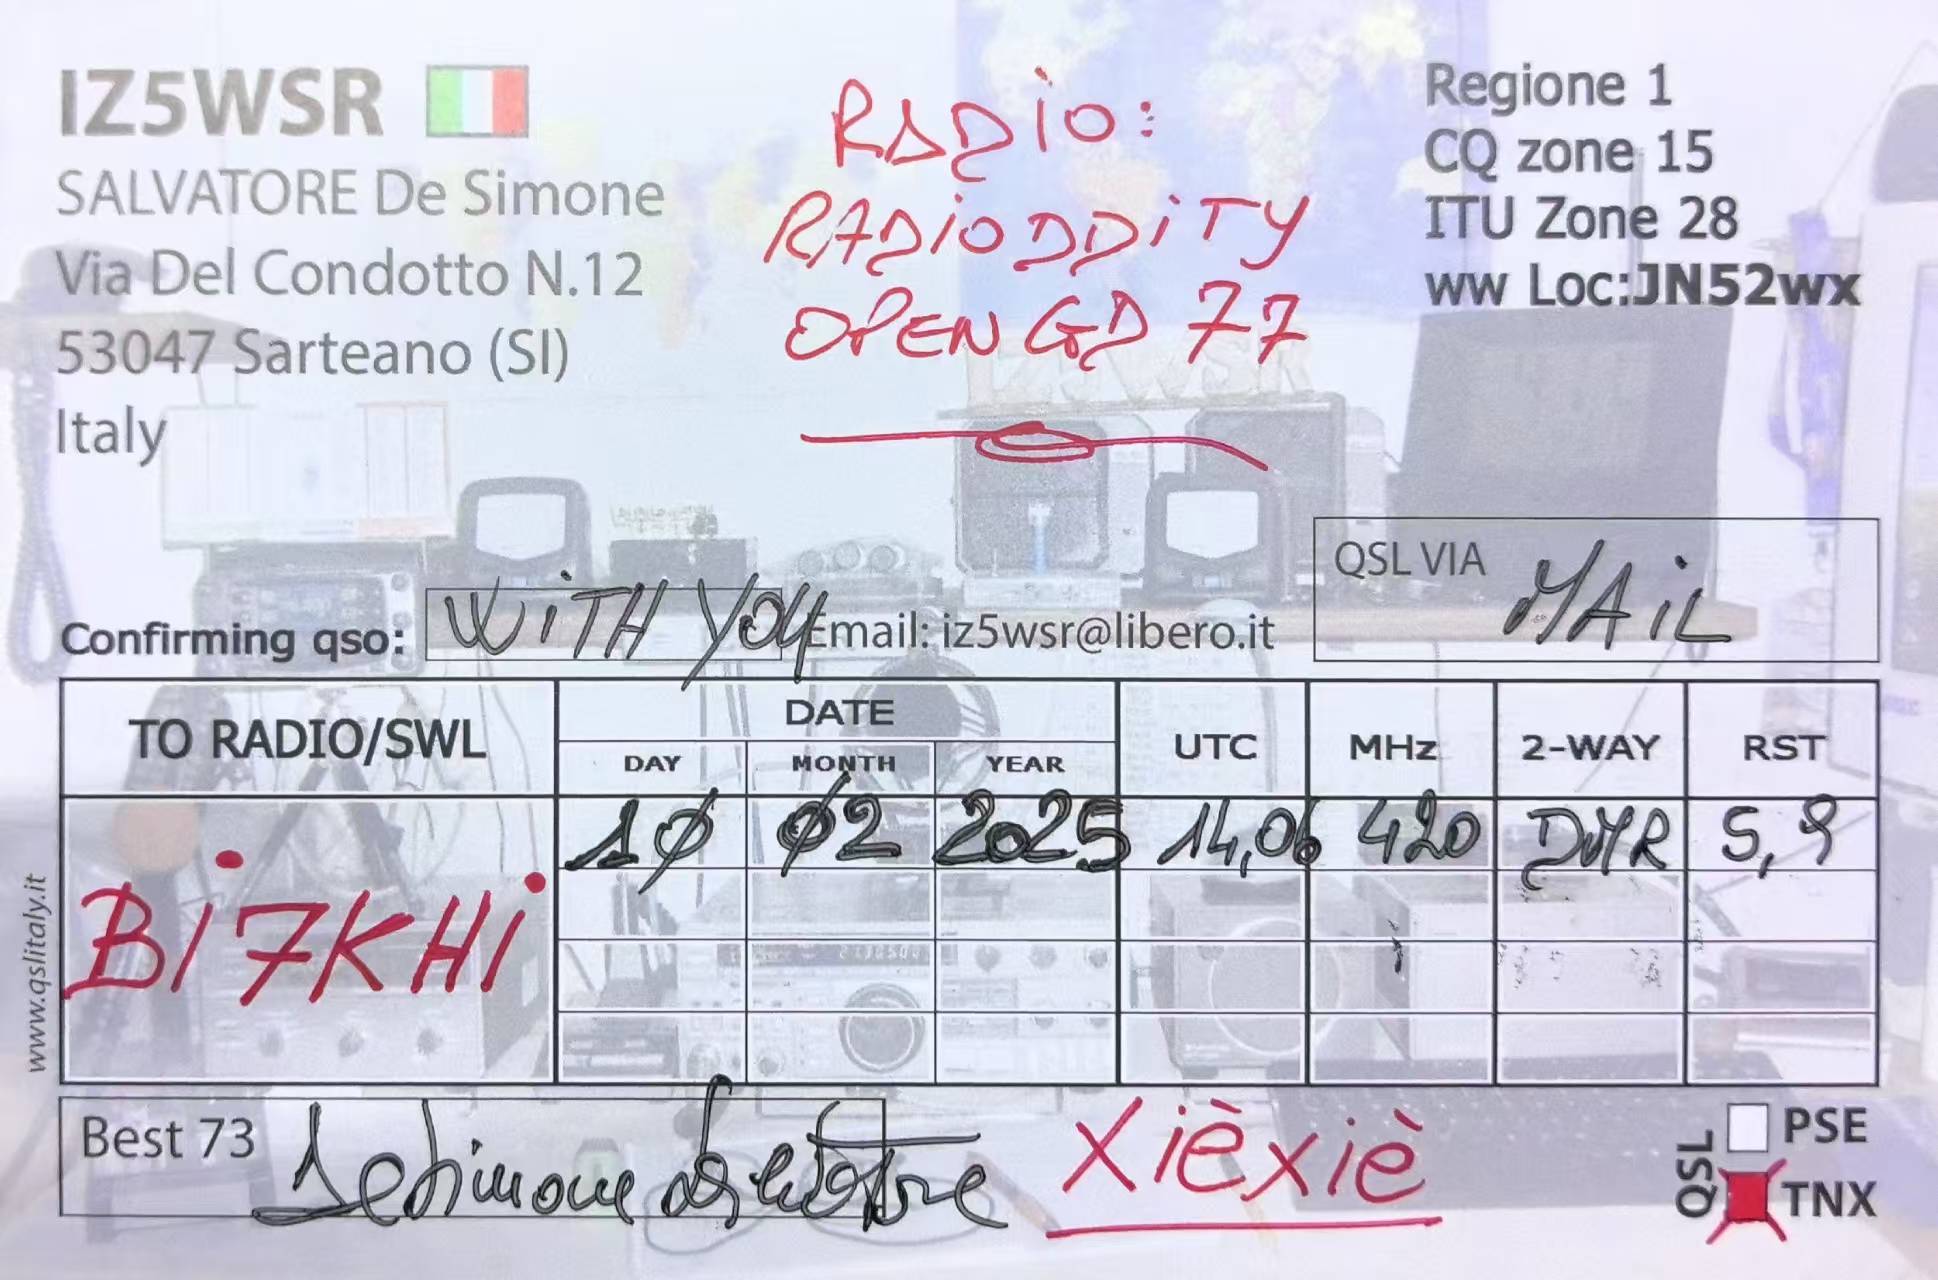 IZ5WSR
SALVATORE De Simone
Via Del Condotto N.12
53047 Sarteano (SI)
Italy
RADiO:
RADiODDiTY
OPEN GD 77
Regione 1
CQ zone 15
ITU Zone 28
ww Loc:JN52wx
IZ5WSR
QSL VIA MAiL
Confirming qso: WiTH YOU Email: iz5wsr@libero.it
TO RADIO/SWL DATE UTC MHz 2-WAY RST
DAY MONTH YEAR
1Ø Ø2 2025 14,06 420 DMR 5,9
Bi7KHi
www.qslitaly.it
Best 73 De Simone Salvatore
Xièxiè
QSL
PSE
TNX